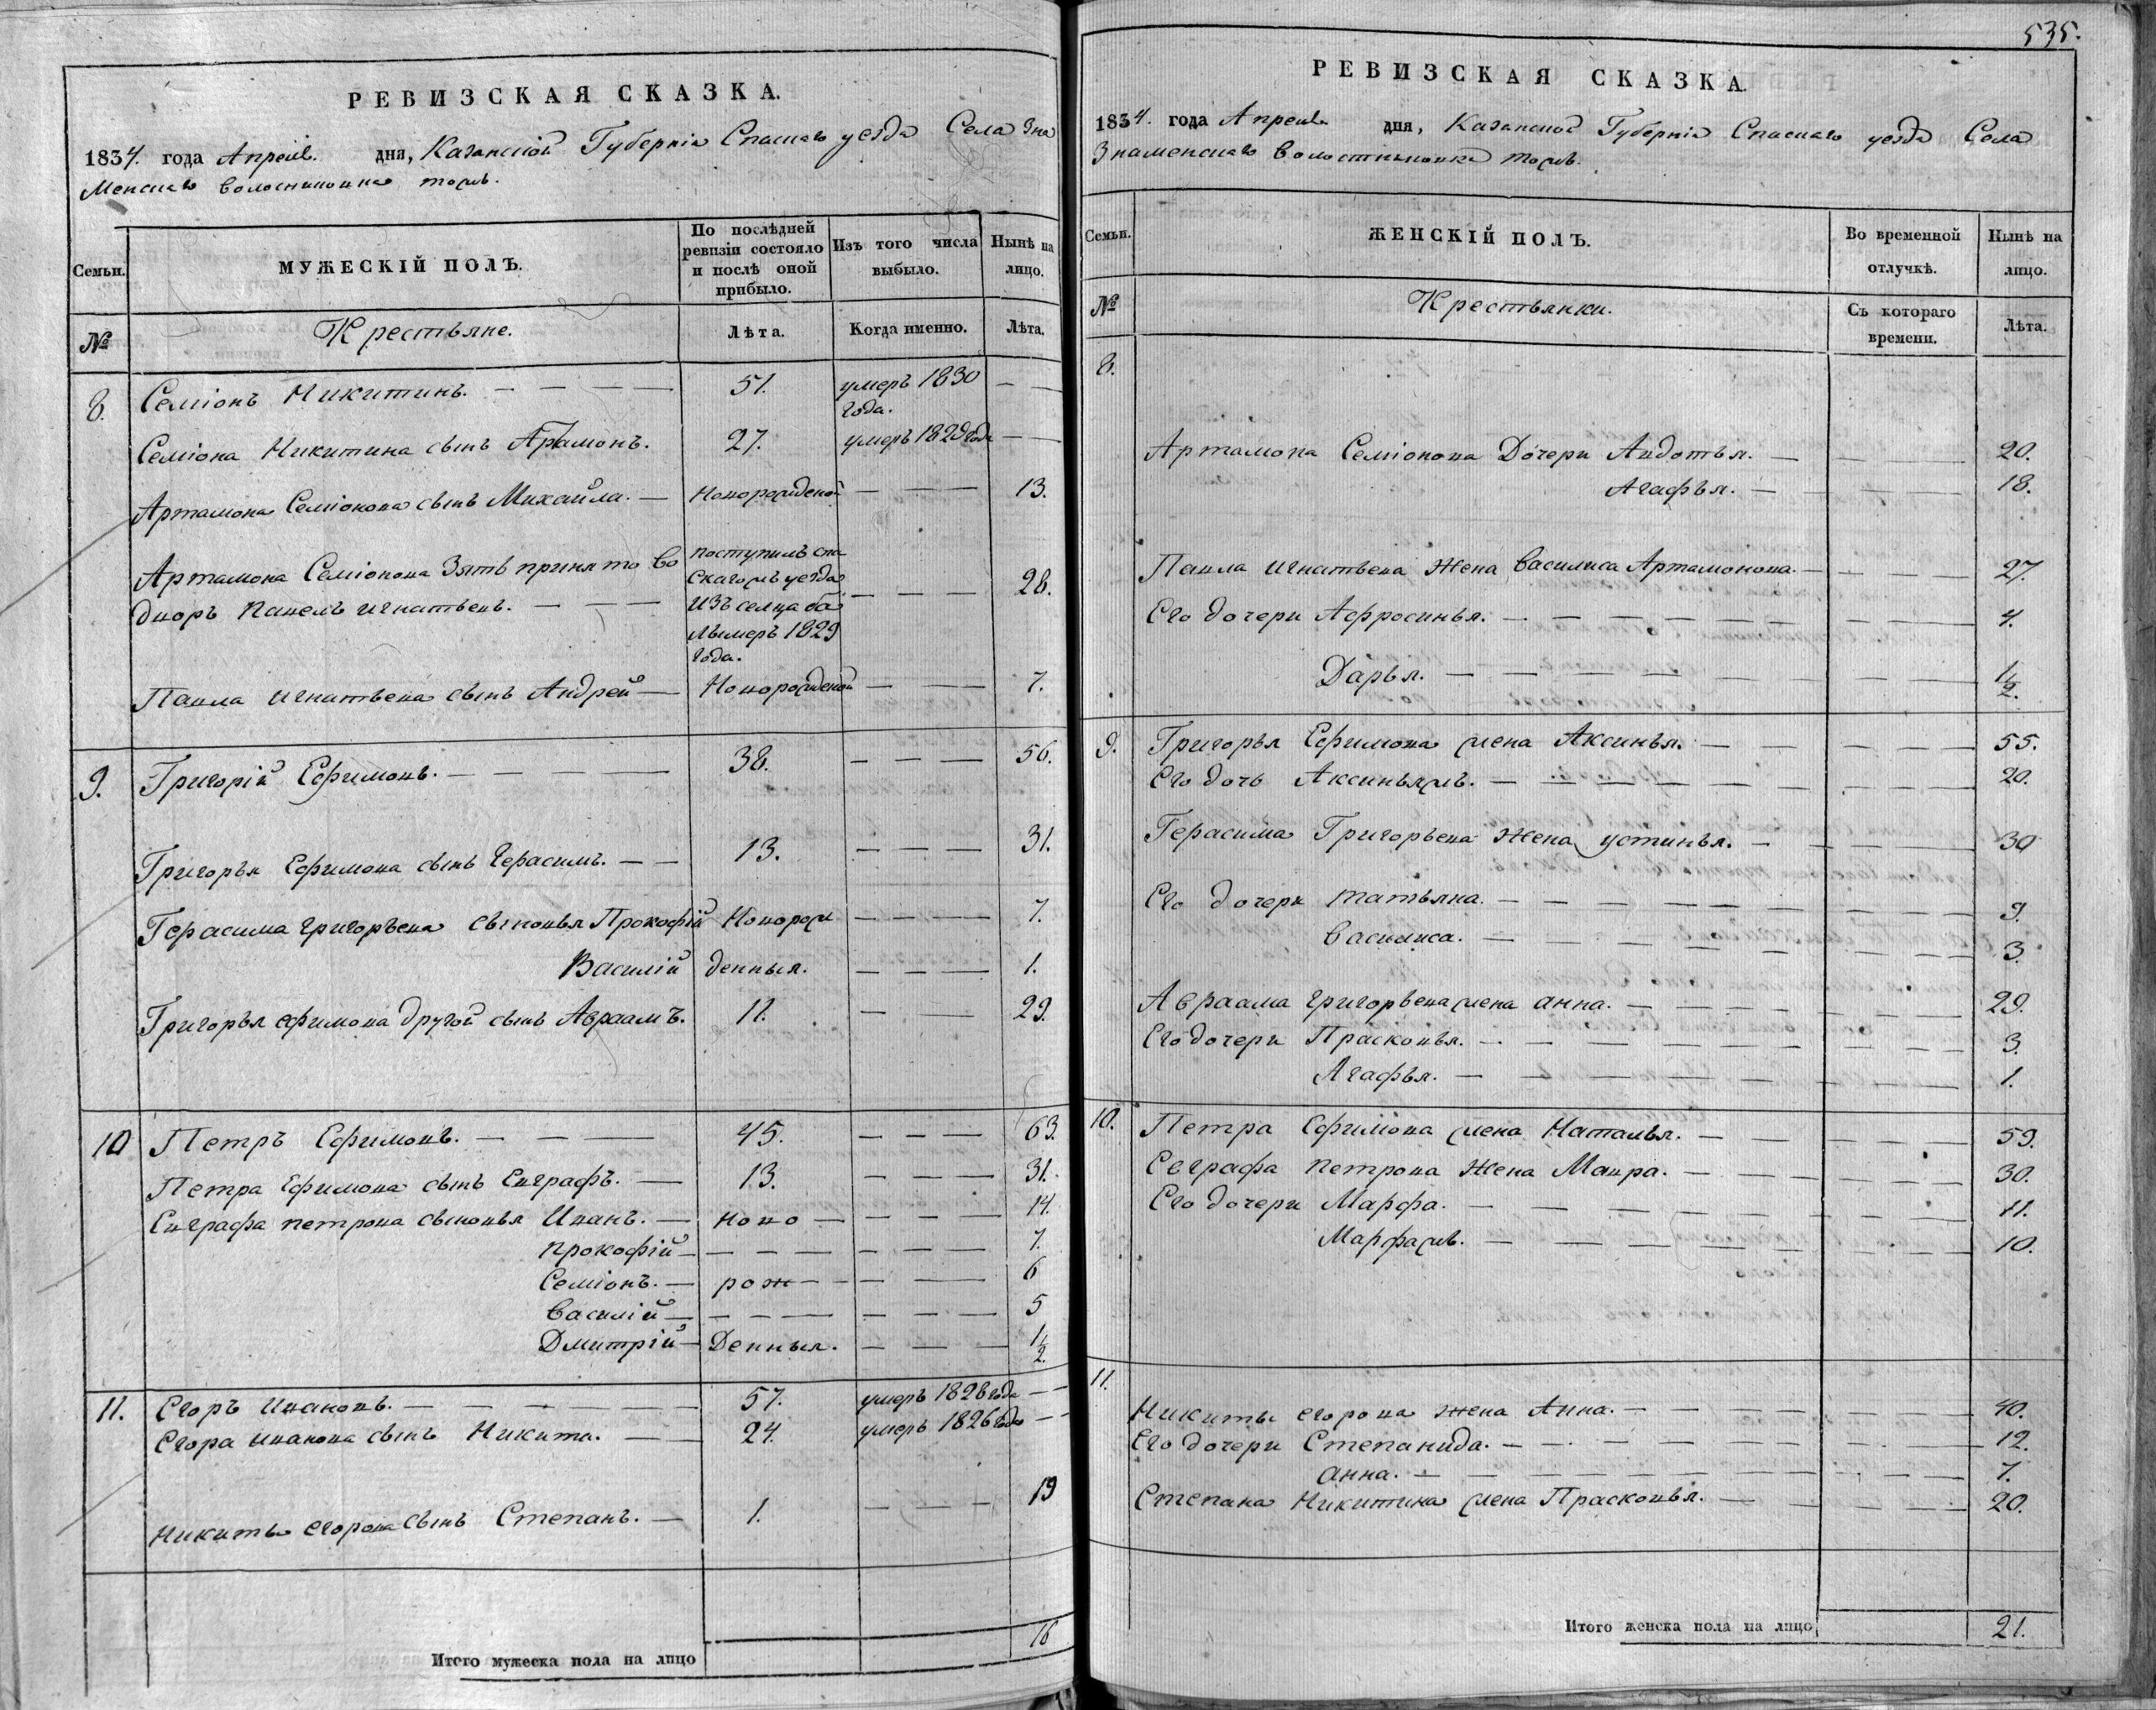 РЕВИЗСКАЯ СКАЗКА.
1834. года Апреля. дня, Казанской Губерніи Спаскаго уезда Села Зна
Менскаго Волостиновка тожъ.
Семьи. МУЖЕСКІЙ ПОЛЪ. По послѣдней ревизіи состояло и послѣ оной прибыло. Изъ того числа выбыло. Нынѣ на лицо.
№ Крестьяне. Лѣта. Когда именно. Лѣта.
8. Семіонъ Никитинъ. — — — — 51. умеръ 1830 года. — —
Семіона Никитина сынъ Артамонъ. 27. умеръ 1829 года — —
Артамона Семіонова сынъ Михайла. — Новорожденой — — — 13.
Артамона Семіонова Зять принято во поступилъ спа
дворъ Павелъ Игнатьевъ. — — — скагожъ уезда — — — 28.
изъ селца ба
лымеръ 1829
года.
Павла Игнатьева сынъ Андрей — Новорожденой — — — 7.
9. Григорій Ефимовъ. — — — — 38. — — — 56.
Григорья Ефимова сынъ Герасимъ. — — 13. — — — 31.
Герасима Григорьева сыновья Прокофій Новорож — — — 7.
Василій денныя. — — — 1.
Григорья Ефимова другой сынъ Авраамъ. 11. — — 29.
10 Петръ Ефимовъ. — — — 45. — — — 63.
Петра Ефимова сынъ Евграфъ. — 13. — — — 31.
Евграфа Петрова сыновья Иванъ. — ново — — — — 14.
Прокофій — — — — — — — 7.
Семіонъ. — рож — — — — 6
Василій — — — — — — — 5
Дмитрій — Денныя. — — — 1/2.
11. Егоръ Ивановъ. — — — — — 57. умеръ 1828 года — —
Егора Иванова сынъ Никита. — — 24. умеръ 1826 года — —
Никиты Егорова сынъ Степанъ. — 1. — — — 19
Итого мужеска пола на лицо 16
535.
РЕВИЗСКАЯ СКАЗКА.
1834. года Апреля дня, Казанской Губерніи Спаскаго уезда Села
Знаменскаго Волостиновка тожъ.
Семьи. ЖЕНСКІЙ ПОЛЪ. Во временной отлучкѣ. Нынѣ на лицо.
№ Крестьянки. Съ котораго времени. Лѣта.
8.
Артамона Семіонова Дочери Авдотья. — — — — 20.
Агафья. — — — — 18.
Павла Игнатьева Жена Василиса Артамонова. — — — — 27.
Его дочери Афросинья. — — — — — — — — — 4.
Дарья. — — — — — — — — — 1/2.
9. Григорья Ефимова жена Аксинья. — — — — — 55.
Его дочь Аксиньяжъ. — — — — — — — — 20.
Герасима Григорьева Жена Устинья. — — — — 30
Его дочери Татьяна. — — — — — — — — — 9.
Василиса. — — — — — — — — 3.
Авраама Григорьева жена Анна. — — — — — — — 29.
Его дочери Прасковья. — — — — — — — — — 3.
Агафья. — — — — — — — — — 1.
10. Петра Ефимова жена Наталья. — — — — — — 59.
Евграфа Петрова Жена Мавра. — — — — — — 30.
Его дочери Марфа. — — — — — — — — — 11.
Марфажъ. — — — — — — — — 10.
11.
Никиты Егорова жена Анна. — — — — — — — 40.
Его дочери Степанида. — — — — — — — — 12.
Анна. — — — — — — — — — 7.
Степана Никитина жена Прасковья. — — — — — 20.
Итого женска пола на лицо 21.